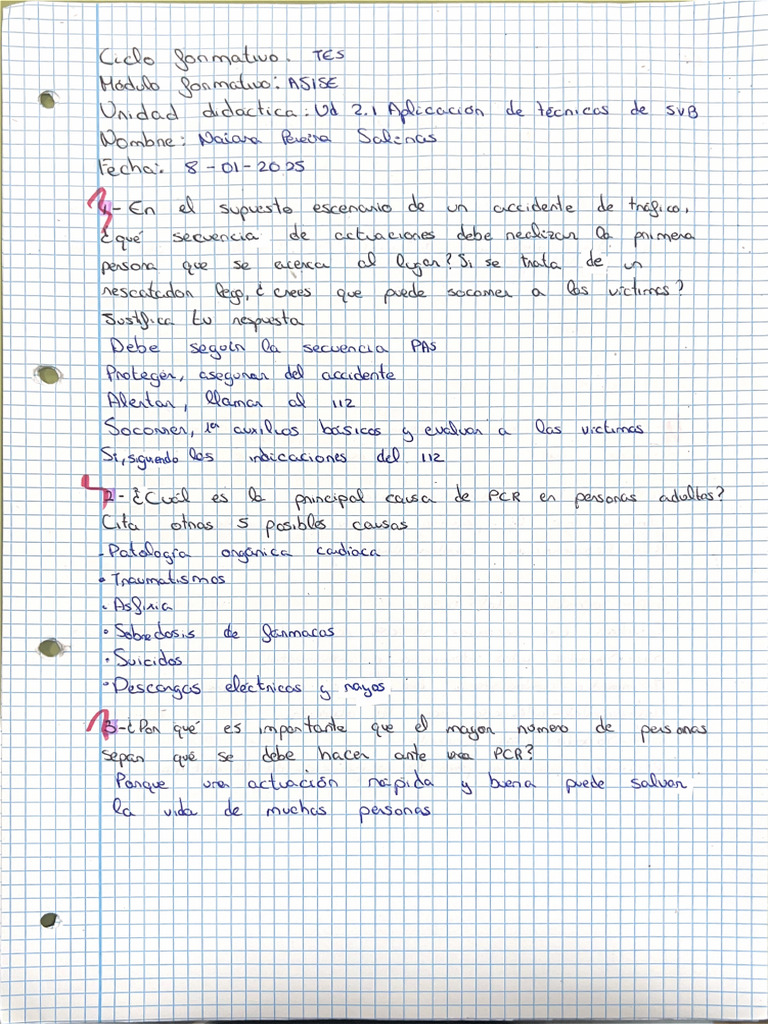 Ciclo formativo: TES
Módulo formativo: ASISE
Unidad didactica: Ud 2.1 Aplicación de técnicas de SVB
Nombre: Naiara Pereira Salinas
Fecha: 8-01-2025
1- En el supuesto escenario de un accidente de tráfico,
¿qué secuencia de actuaciones debe realizar la primera
persona que se acerca al lugar? Si se trata de un
rescatador lego, ¿crees que puede socorrer a las víctimas?
Justifica tu respuesta
Debe seguir la secuencia PAS
Proteger, asegurar del accidente
Alertar, llamar al 112
Socorrer, 1er auxilios básicos y evaluar a las victimas
Si, siguendo las indicaciones del 112
2- ¿Cuál es la principal causa de PCR en personas adultas?
Cita otras 5 posibles causas
- Patología orgánica cardiaca
• Traumatismos
• Asfixia
• Sobredosis de fármacos
• Suicidos
• Descargas eléctricas y rayos
3- ¿Por qué es importante que el mayor número de personas
sepan qué se debe hacer ante una PCR?
Porque una actuación rápida y buena puede salvar
la vida de muchas personas